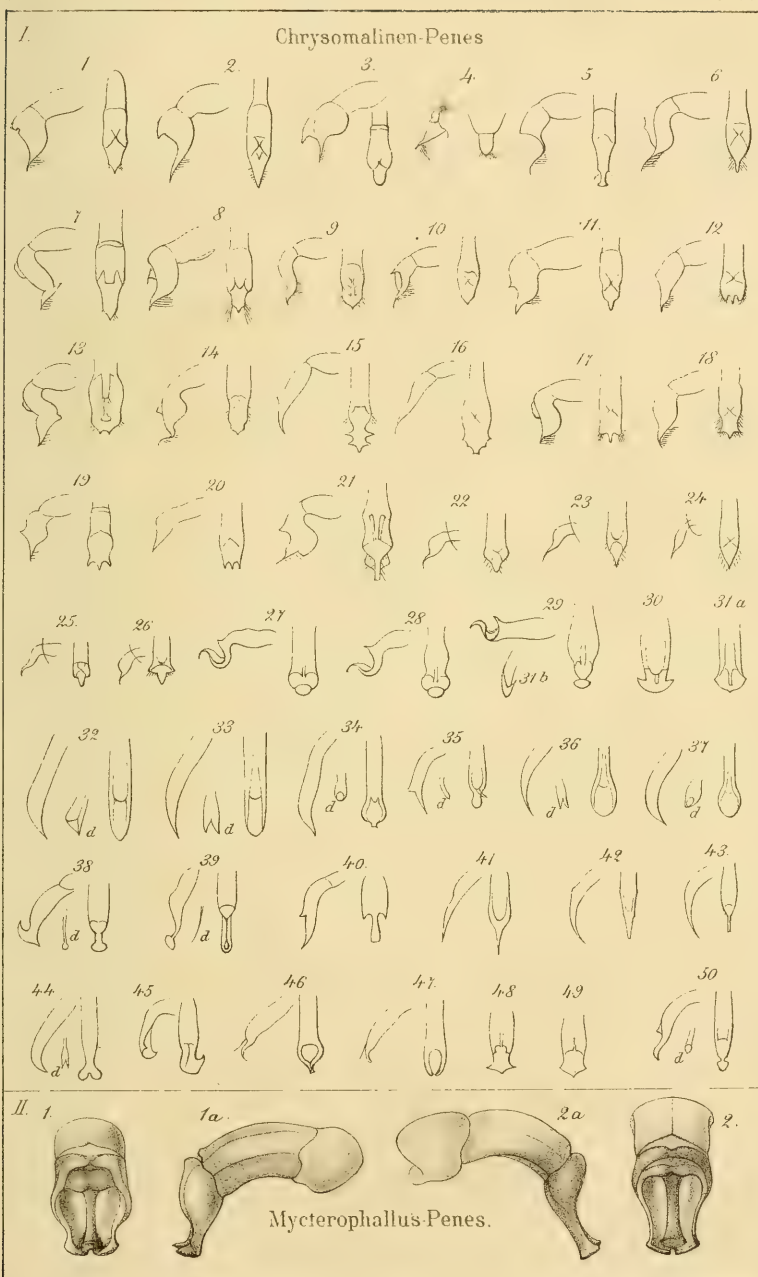 I. Chrysomalinen-Penes
1 2. 3. 4. 5 6
7 8 9 10 11. 12
13 14 15 16 17 18
19 20 21 22 23 24
25. 26 27 28 29 30 31 a
31 b
32 33 34 35 36 37
d d d d d d
38 39 40. 41 42 43
d d
44 45 46 47 48 49 50
d d
II. 1. 1a. 2a 2.
Mycterophallus-Penes.